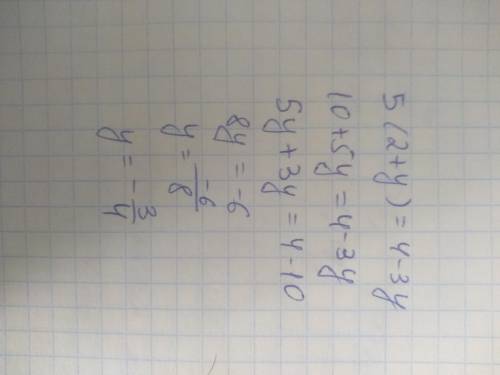 5(2+y)=4-3y
10+5y=4-3y
5y+3y=4-10
8y=-6
y=-6/8
y=-3/4